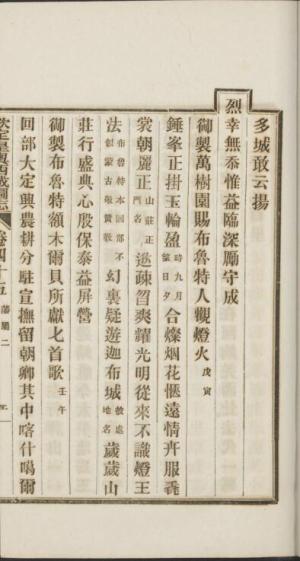 多城敢云揚
烈幸無忝惟益臨深勵守成
御製萬樹園賜布魯特人觀燈火戊寅
錘峯正掛玉輪盈時九月望日夕合燦烟花愜遠情卉服毳
裳朝麗正山莊正門名逖疎曶爽耀光明從來不識燈王
法布魯特本回部不習蒙古敬黃教幻裏疑遊迦布城佛處地名歲歲山
莊行盛典心殷保泰益屏營
御製布魯特額木爾貝所獻七首歌壬午
回部大定興農耕分駐宣撫留朝卿其中喀什噶爾
欽定皇輿西域圖志
卷四十五
藩屬二